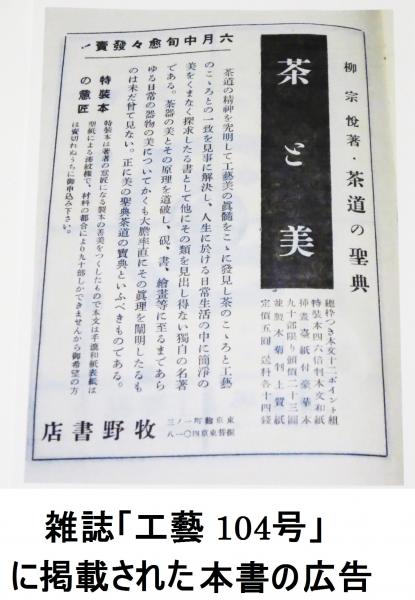 柳宗悅著・茶道の聖典
茶と美
總枠つき本文十二ポイント組
特裝本四六倍判本文和紙
挿畫臺紙付豪華本
九十部限り頒價二十三圓
並製本菊判上質紙
定價五圓 送料各十四錢
六月中旬愈々發賣
茶道の精神を究明して工藝美の眞髓をこゝに發見し茶のこゝろと工藝
美をくまなく探求したる書として他にその類を見出し得ない獨自の名著
のこゝろとの一致を見事に解決し、人生に於ける日常生活の中に簡淨の
である。茶器の美とその原理を道破し、硯、書、繪畫等に至るまであら
ゆる日常の器物の美についてかくも大膽率直にその眞理を闡明したるも
のは未だ曾て見ない。正に美の聖典茶道の寶典といふべきものである。
特裝本の意匠
特裝本は著者の意匠になる製本の善美をつくしたもので本文は手漉和紙表紙は
型紙による漆紋樣で、材料の都合により九十部しかできませんから御希望の方
は賣切れぬうちに御申込み下さい。
東京麴町一ノ三
振替東京四〇一八
牧野書店
雑誌「工藝 104号」
に掲載された本書の広告